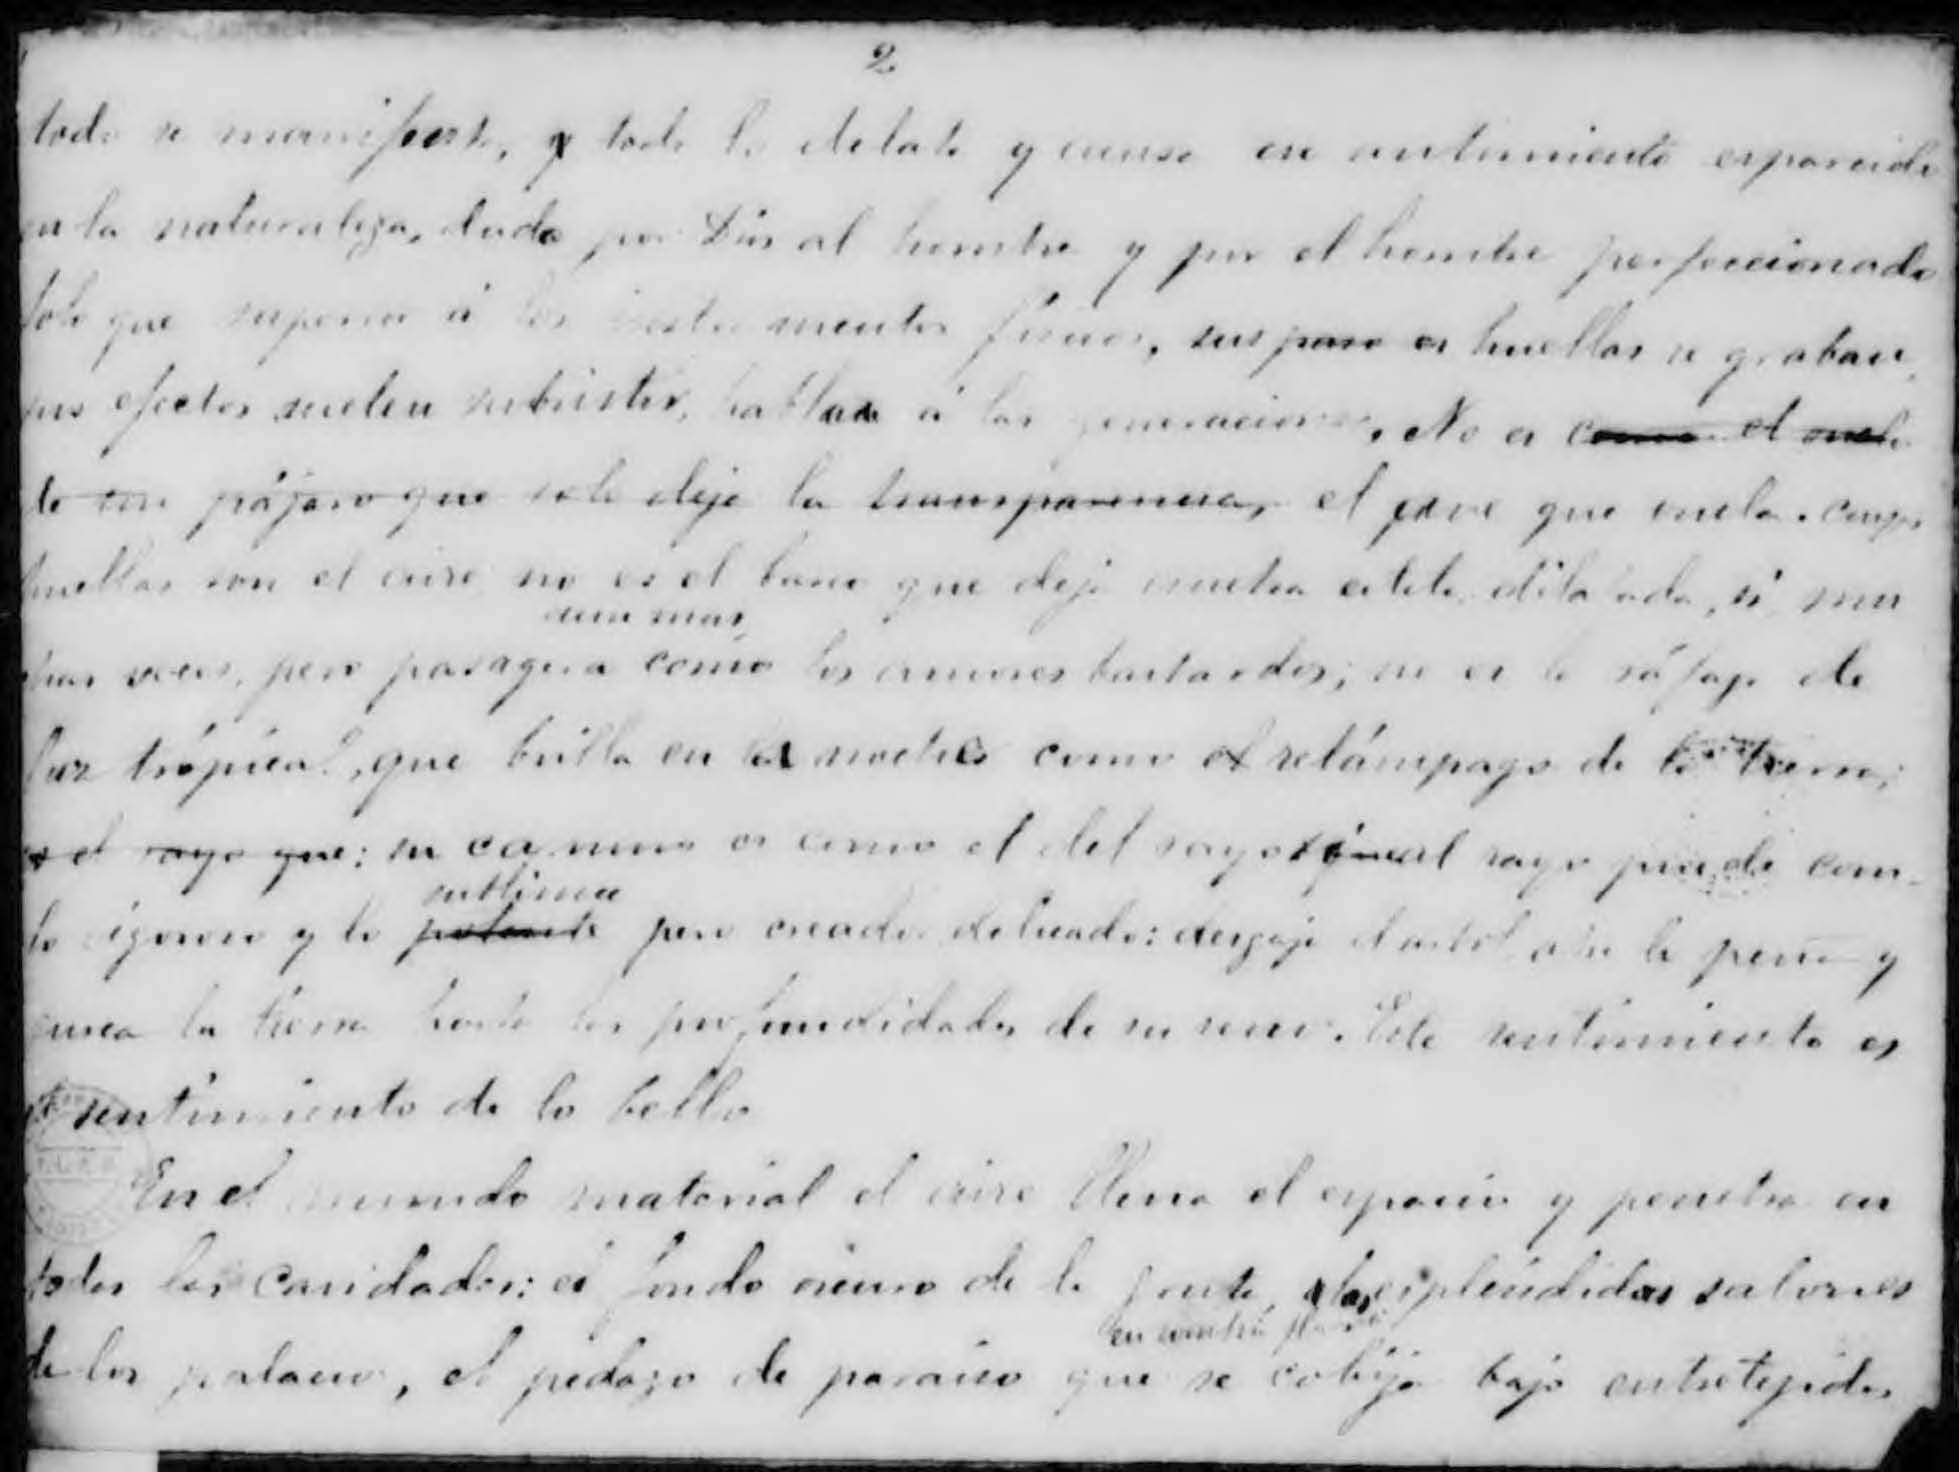 2
todo se manifiesta, y todo lo delata y acusa un sentimiento esparcido
en la naturaleza, dado por Dios al hombre y por el hombre perfeccionado
solo que superior á los instrumentos físicos, sus paso es huellas se graban,
sus efectos suelen subsistir, hablan á las generaciones. No es como el vuelo
de un pájaro que solo deja la transparencia, el ave que vuela. cuyas
huellas son el aire no es el barco que deja nuestra estela dilatada, si mu
aun mas,
chas veces, pero pasagera como los amores bastardos; no es la ráfaga de
luz tropical, que brilla en la noche como el relámpago de la tierra;
es el rayo que: su camino es como el del rayo igual rayo puede com-
sublime
lo vigoroso y lo potente pero creador delicado: desgaja el arbol abre la peña y
surca la tierra hasta las profundidades de su seno. Este sentimiento es
el sentimiento de lo bello
En el mundo material el aire llena el espacio y penetra en
todas las cavidades: el fondo oscuro de la gruta, los esplendidos salones
en nuestra
de los palacios, el pedazo de paraiso que se cobija bajo entretejidos